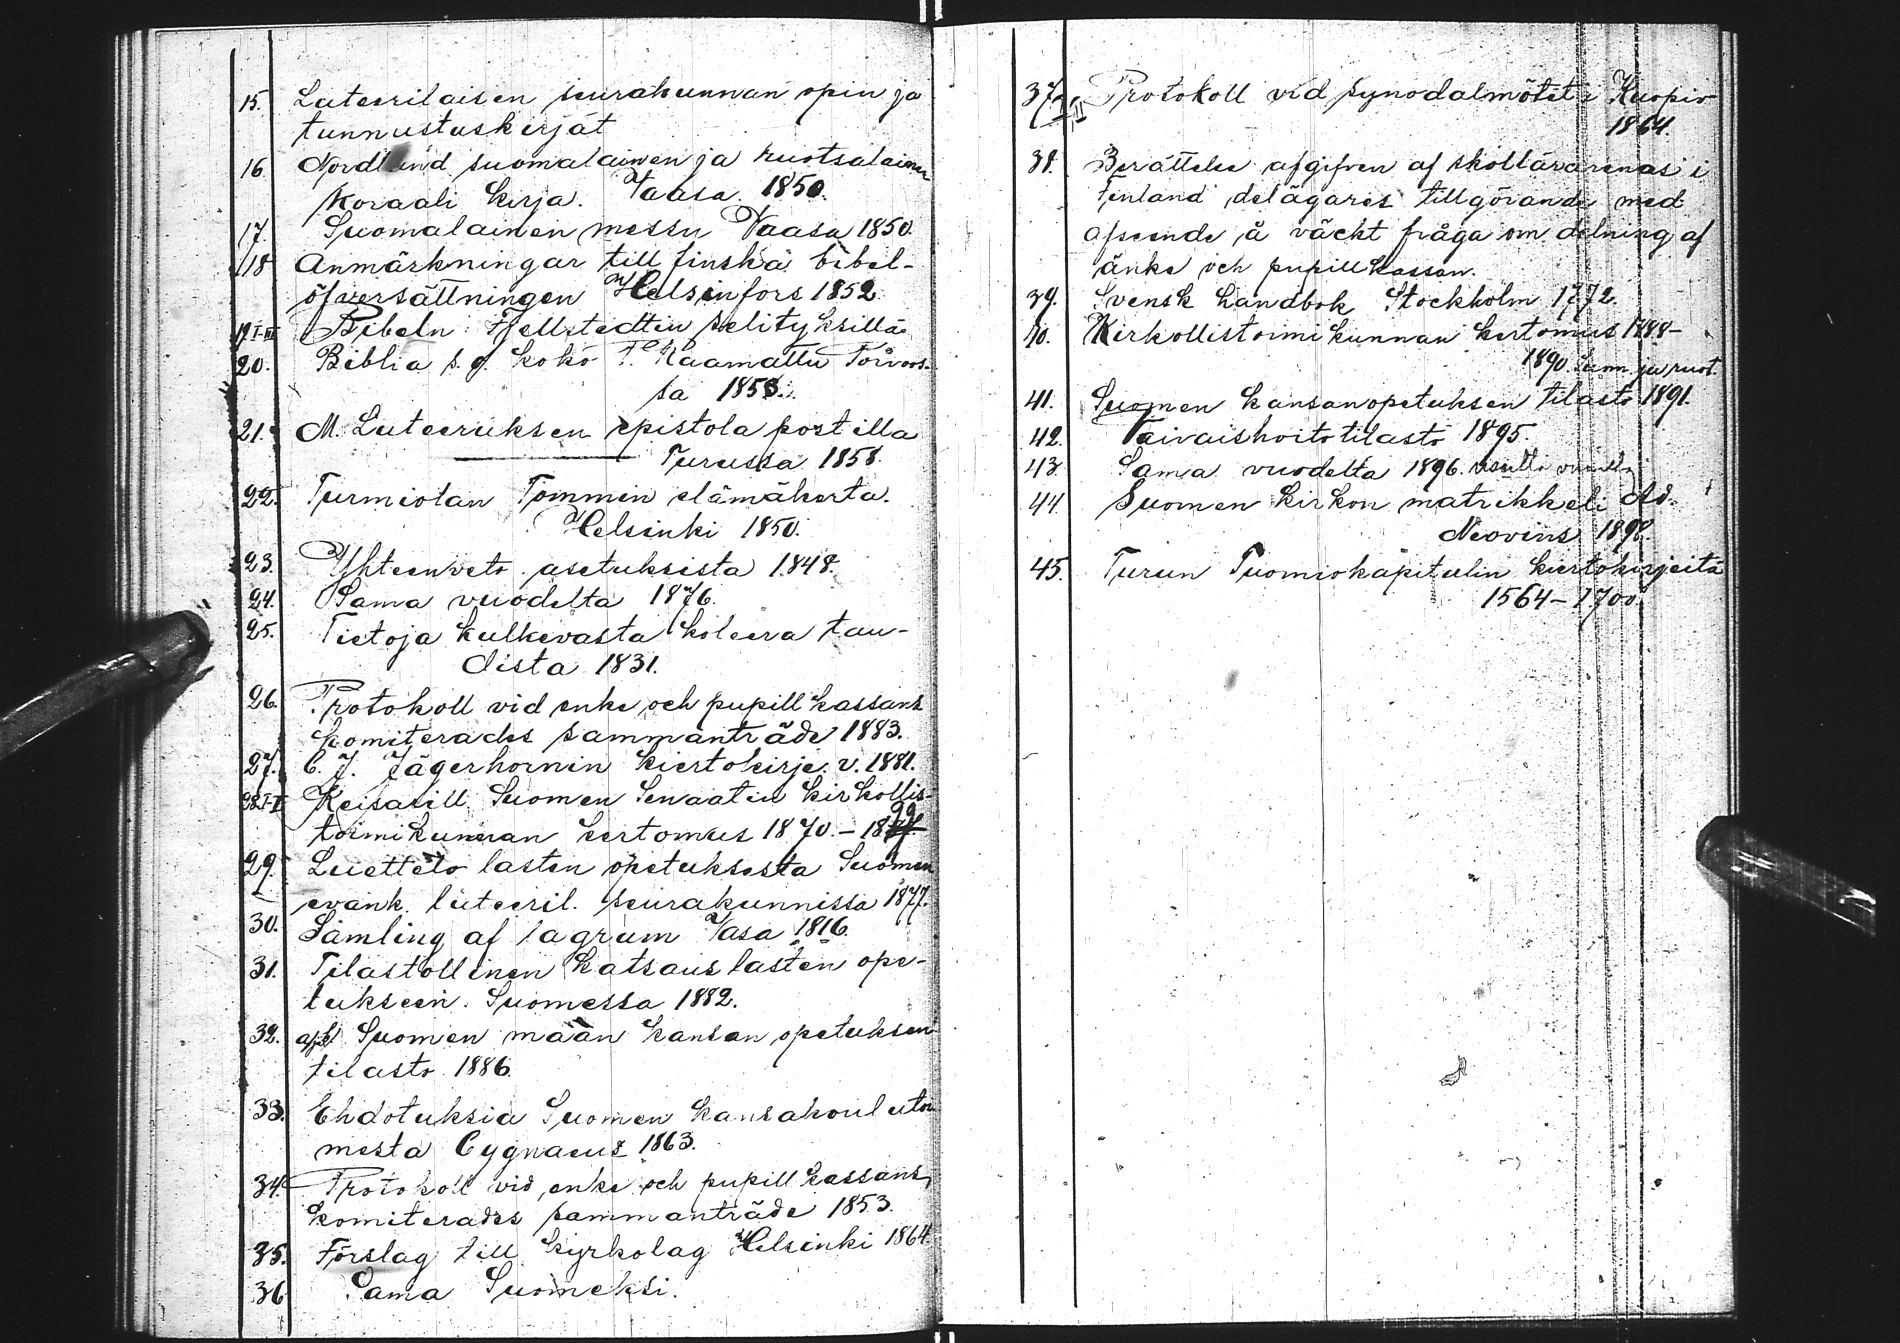 15. Luteerilaisen seurakunnan opin ja
tunnustuskirjat
16. Nordlund suomalainen ja ruotsalainen
Koraali kirja. Vaasa 1850.
17. Suomalainen messu Vaasa 1850
18 Anmärkningar till finska bibel-
öfversättningen Helsinfors 1852
19 I-III Bibeln Fjellstedtin selityksillä
20. Biblia s. o. koko P. Raamattu Porvoos-
sa 1858.
21. M. Luteeruksen epistola postilla
Turussa 1858.
22. Turmiolan Tommin elämäkerta.
Helsinki 1850.
23. Yhteenveto asetuksista 1848.
24. Sama vuodelta 1876.
25. Tietoja kulkevasta koleera tau-
dista 1831.
26. Protokoll vid enke och pupill kassans
komiterades sammanträde 1883.
27. C. J. Jägerhornin kiertokirje v. 1881.
28 I-II Keisarill. Suomen Senaatin kirkollis-
toimikunnan kertomus 1870.- 18
29. Luettelo lasten opetuksesta Suomen
evank. luteeril. seurakunnissa 1877.
30. Samling af lagrum Vasa 1816.
31. Tilastollinen katsaus lasten ope-
tukseen. Suomessa 1882.
32. Suomen maan kansan opetuksen
tilasto 1886.
33. Ehdotuksia Suomen kansakoulutoi
mesta Cygnaeus 1863.
34. Protokoll vid enke och pupill kassans
komiterades sammanträde 1853.
35. Förslag till kyrkolag Helsinki 1864.
36 Sama Suomeksi.
37. I, II Protokoll vid synodalmötet i Kuopio
1864.
38. Berättelse afgifven af skollärarenas i
Finland delägares tillgörande med
afseende å väckt fråga om delning af
änke och pupill kassan.
39. Svensk handbok Stockholm 1772.
40. Kirkollistoimi kunnan kertomus 1888-
1890. Suom. ja ruot.
41. Suomen kansanopetuksen tilasto 1891.
42. Vaivaishoito tilasto 1895.
43. Sama vuodelta 1896.
44. Suomen kirkon matrikkeli Ad.
Neovius 1898.
45. Turun Tuomiokapitulin kiertokirjeitä
1564-1700.